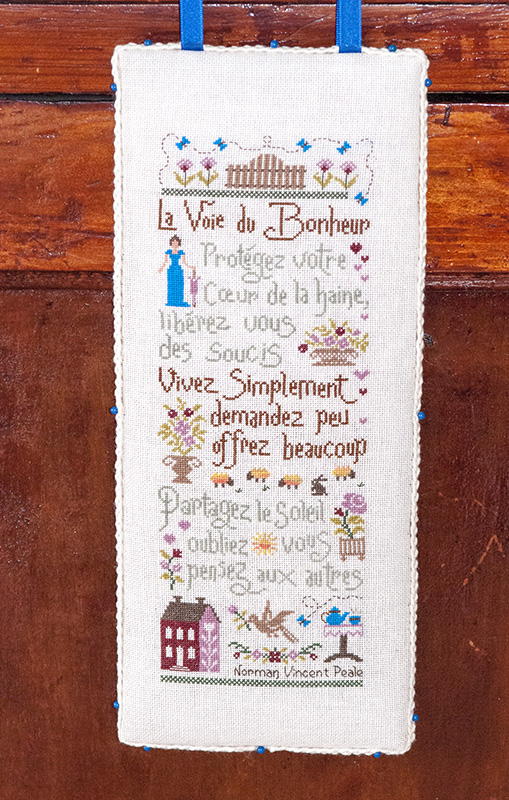 La Voie du Bonheur
Protégez votre
Cœur de la haine,
libérez vous
des soucis
Vivez Simplement
demandez peu
offrez beaucoup
Partagez le soleil
oubliez vous
pensez aux autres
Norman Vincent Peale